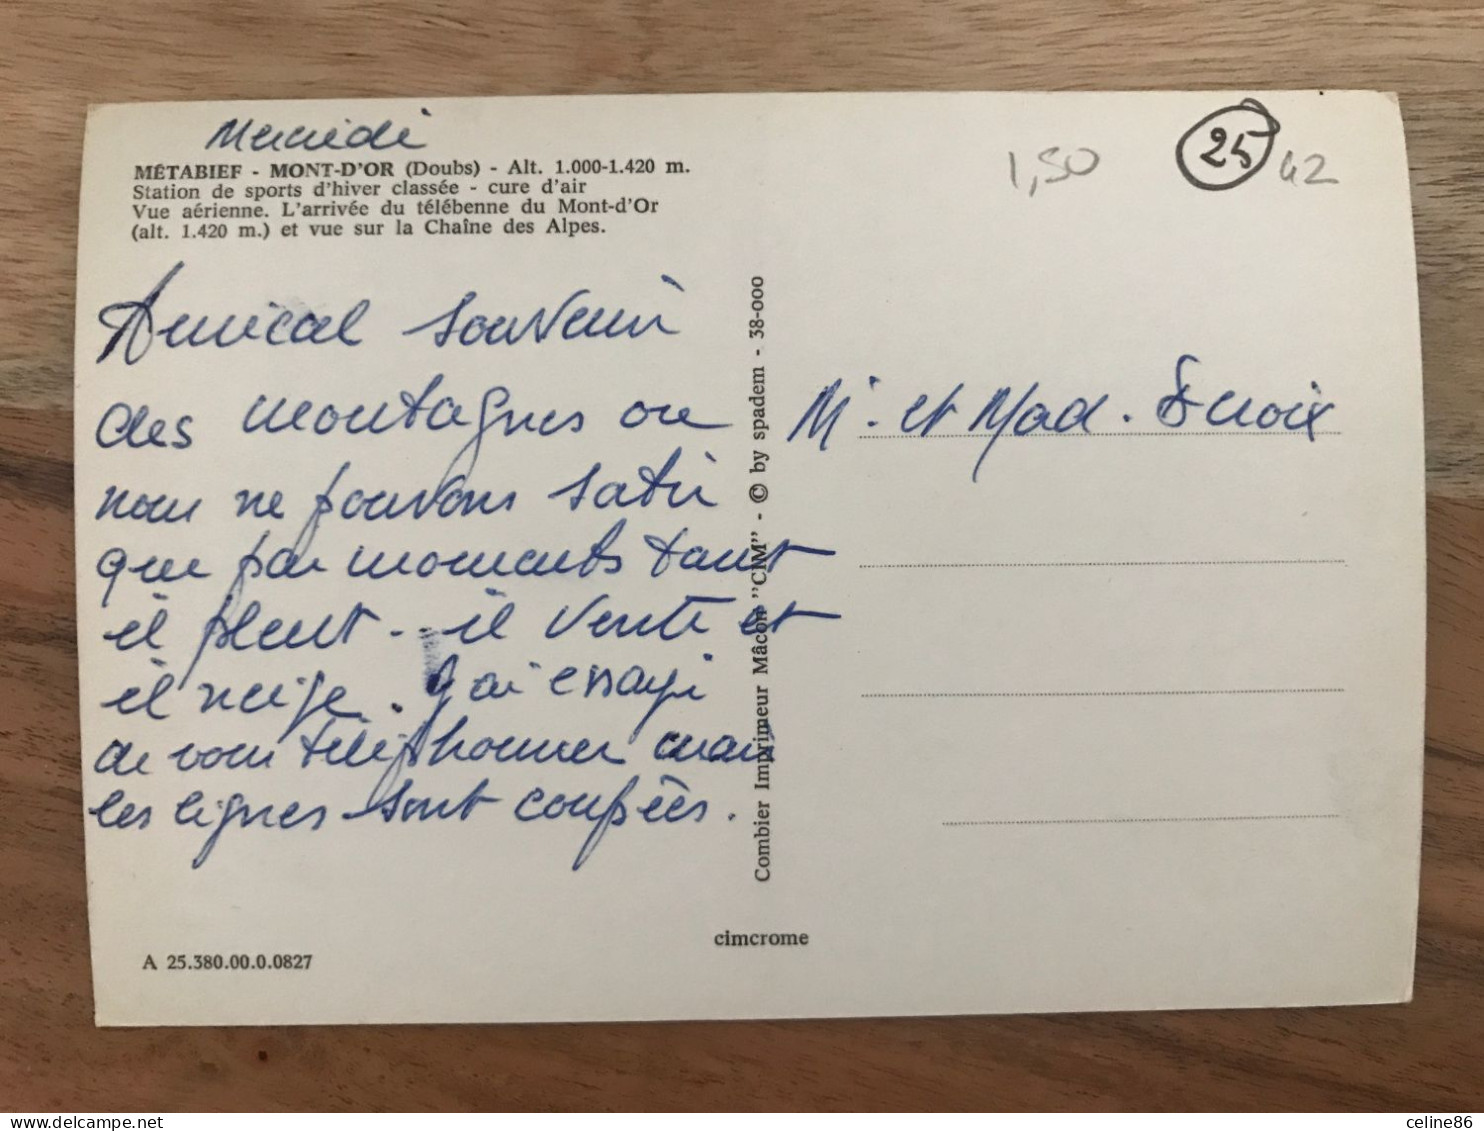 Mercredi
MÉTABIEF - MONT-D'OR (Doubs) - Alt. 1.000-1.420 m.
Station de sports d'hiver classée - cure d'air
Vue aérienne. L'arrivée du télébenne du Mont-d'Or
(alt. 1.420 m.) et vue sur la Chaîne des Alpes.
1,50
25
42
Amical souvenir
des montagnes ou
nous ne pouvons sortir
que par moments tant
il pleut - il vente et
il neige. J'ai essayé
de vous téléphoner mais
les lignes sont coupées.
Combier Imprimeur Mâcon "CIM" - © by spadem - 38-000
Mr. et Mad.
cimcrome
A 25.380.00.0.0827
delcampe.net
celine86